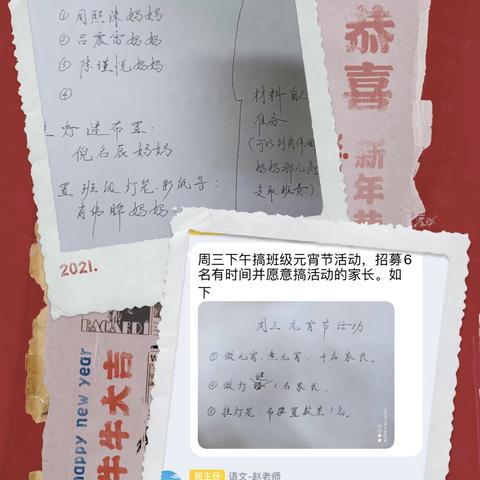 ① 周熙涞妈妈
② 吕震雷妈妈
③ 陈瑾悦妈妈
④
灯谜布置:
倪名辰妈妈
置班级灯笼.彩纸等:
妈妈
材料自己
准备
妈妈那儿
支取班费)
恭喜
新年
2021.
happy new year
牛牛大吉
周三下午搞班级元宵节活动，招募6
名有时间并愿意搞活动的家长。如
下
周三元宵节活动
① 做元宵.煮元宵. 4名家长.
② 做灯谜 1名家长.
③ 挂灯笼.布置教室1名.
班主任 语文-赵老师